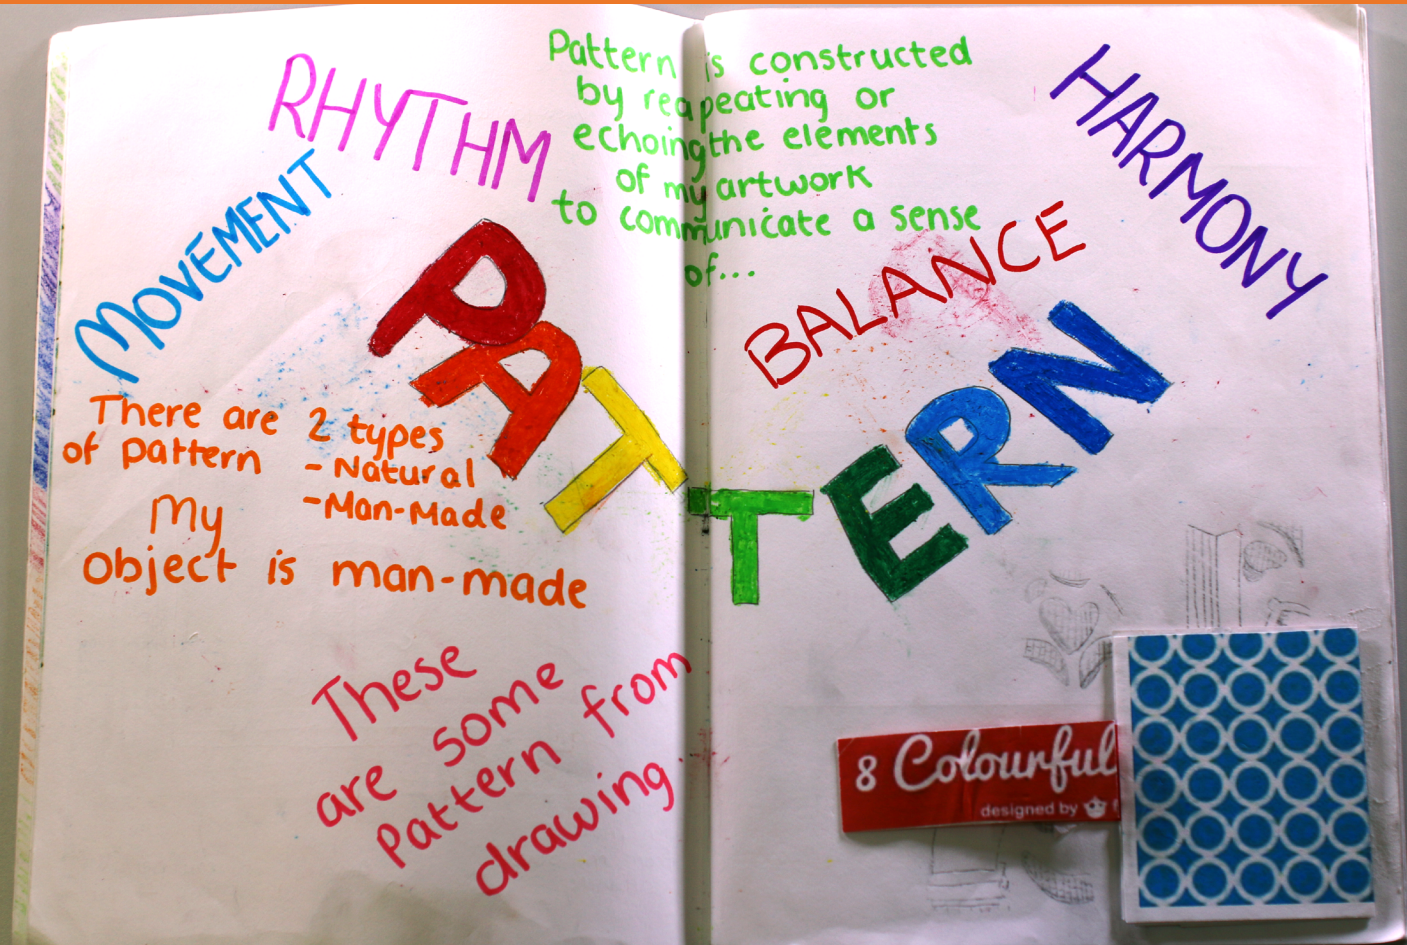 RHYTHM
MOVEMENT
Pattern is constructed
by reapeating or
echoing the elements
of my artwork
to communicate a sense
of...
HARMONY
BALANCE
PATTERN
There are 2 types
of pattern - Natural
- Man-Made
My
object is man-made
These
are some
Pattern from
drawing.
8 Colourful
designed by